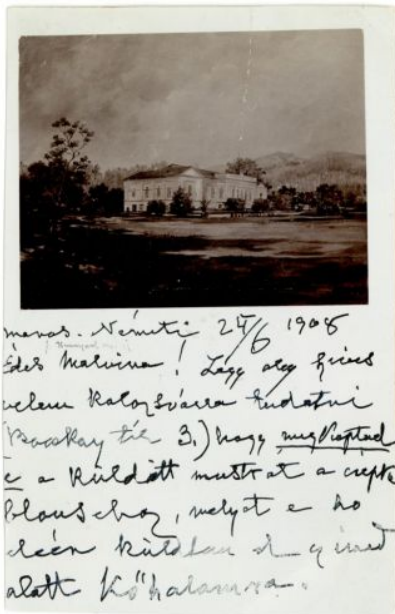 maros-Németi 24/6 1908
Édes Malvina! Légy oly szíves
velem Kolozsvárra tudatni
Bocskay tér 3.) hogy megkaptad
e a küldött mustrát a csipke
blousehoz, melyet e hó
elején küldtem
alatt Kőhalomra.